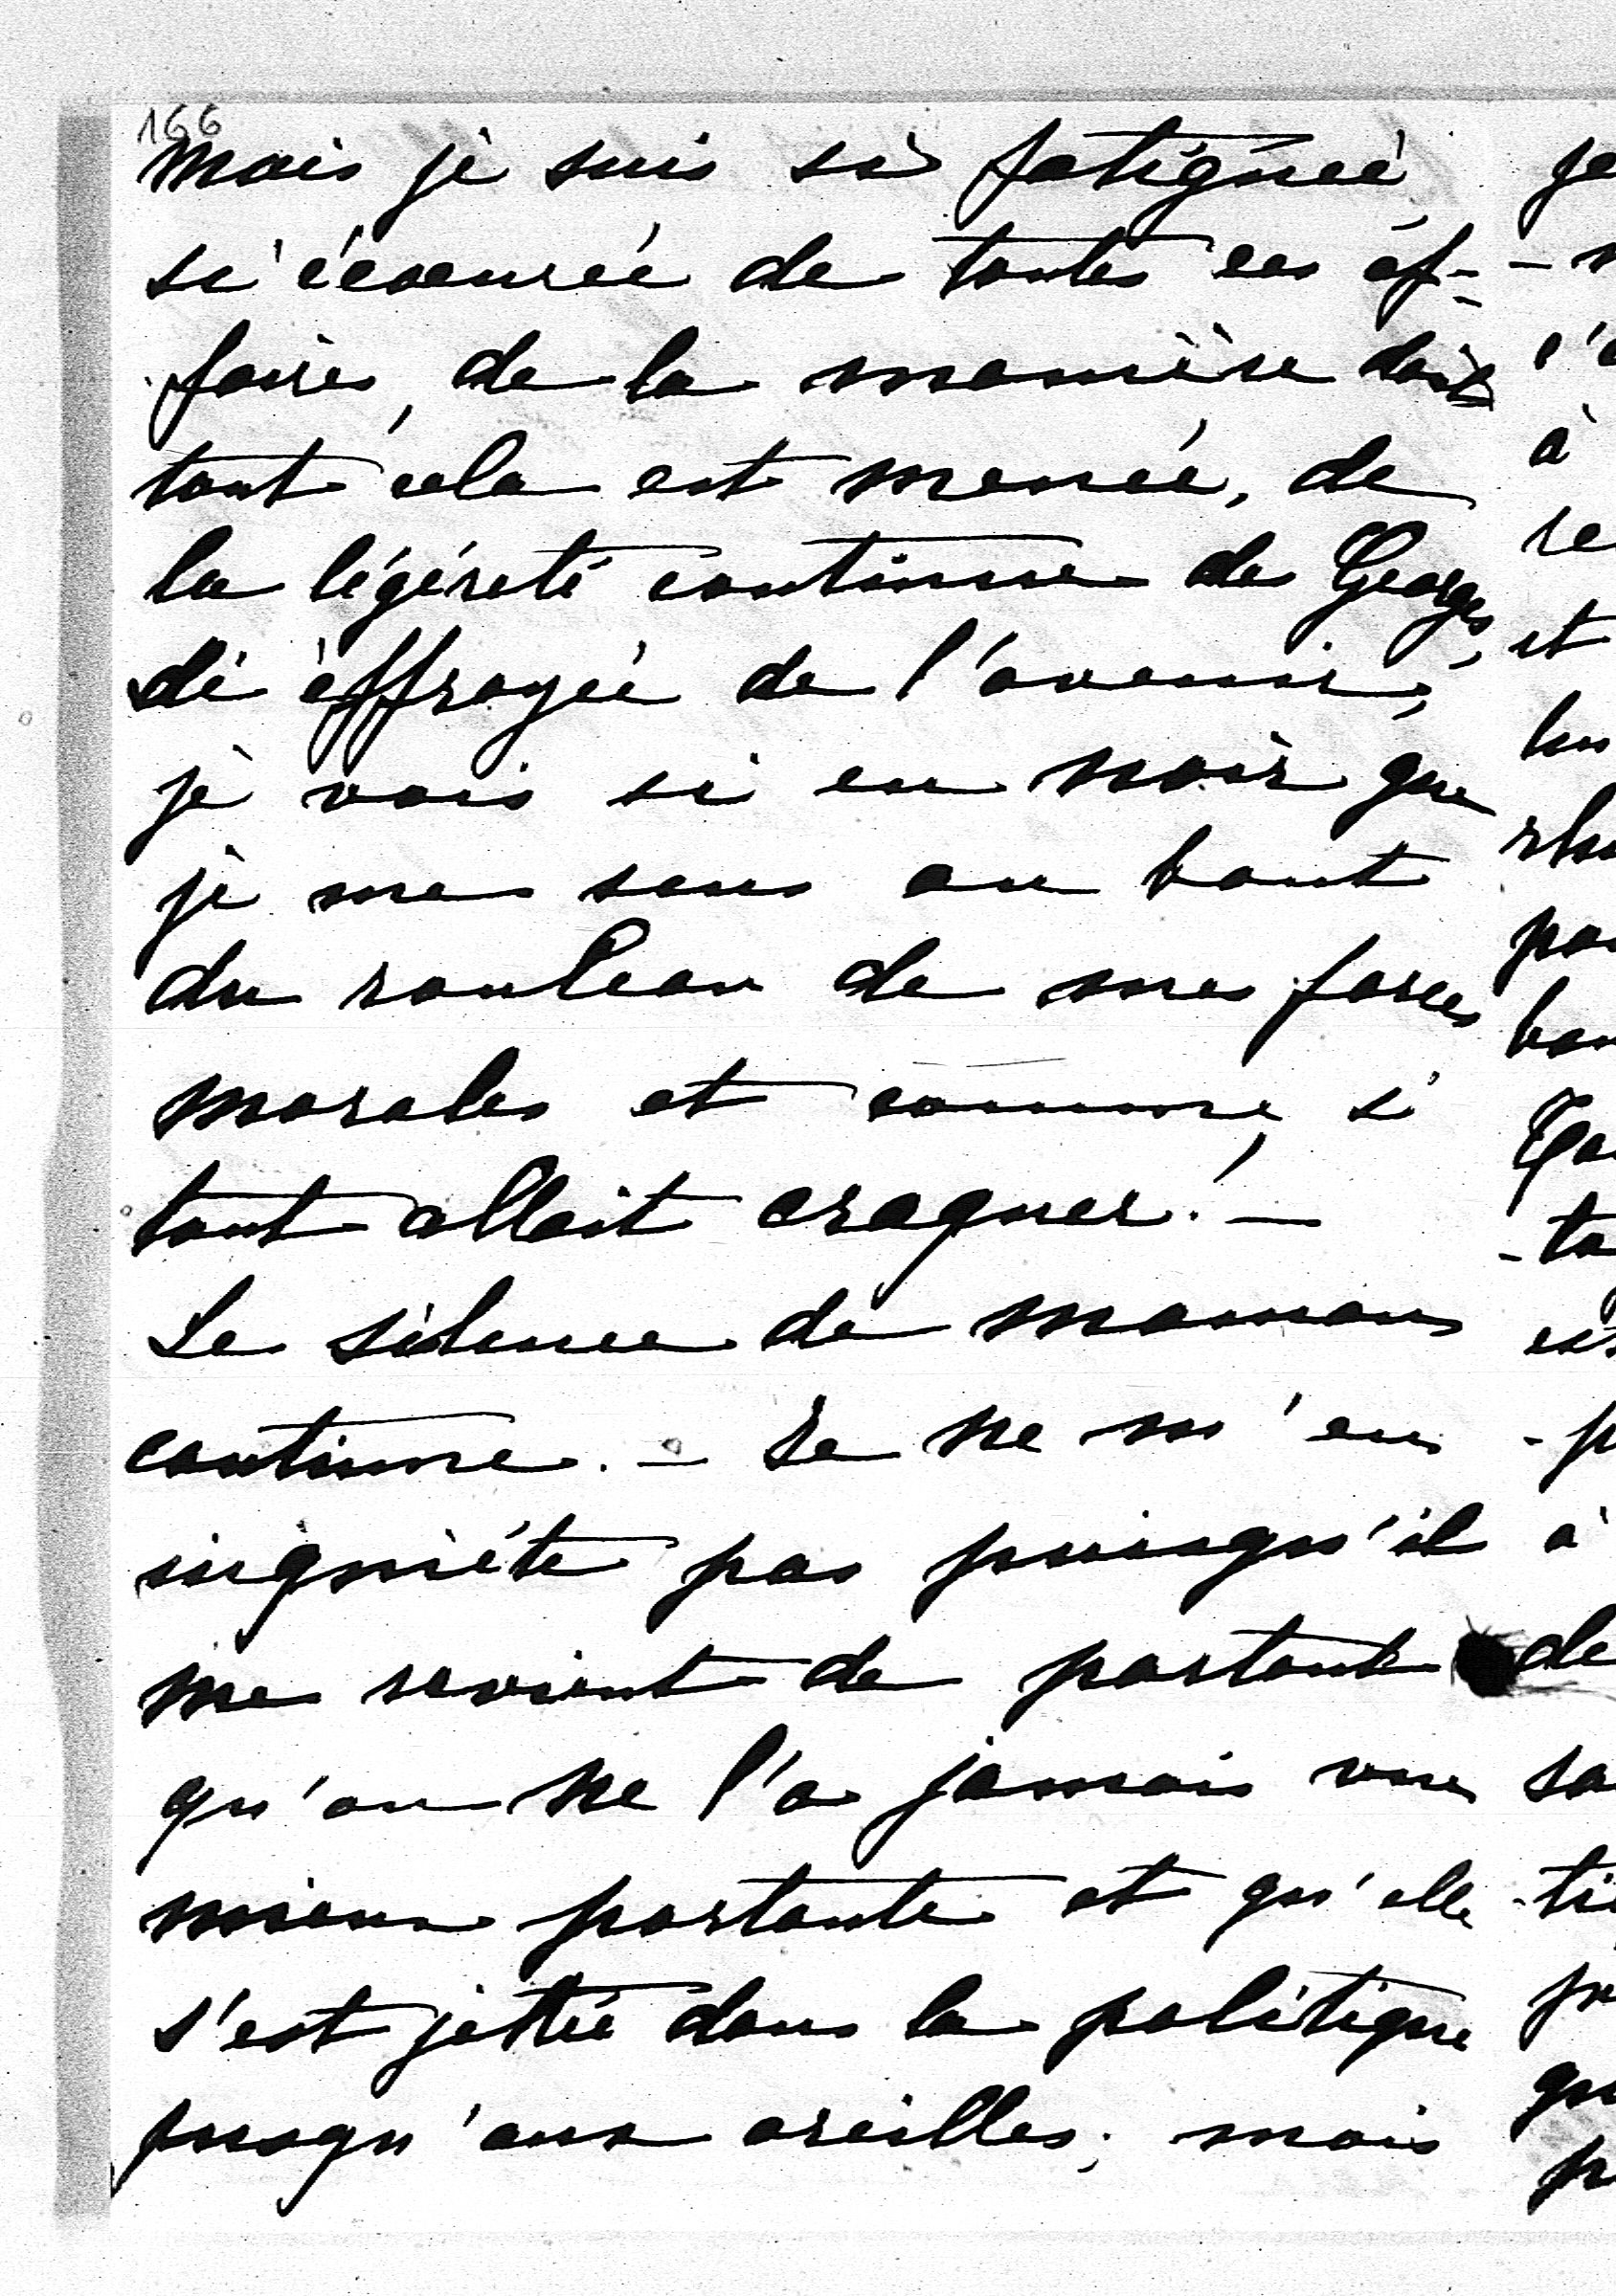 166
mais je suis si fatiguée,
si écœurée de toutes ces af-
faires, de la manière dont
tout cela est menée, de
la légéreté continue de Georges,
si effrayée de l'avenir;
je vois si en noir que
je me sens au bout
du rouleau de mes forces
morales et comme si
tout allait craquer! —
Le silence de maman
continue. — Je ne m'en
inquiéte pas puisqu'il
me revient de partout
qu'on ne l'a jamais vue
mieux portante et qu'elle
s'est jettée dans la politique
jusqu'aux oreilles; mais